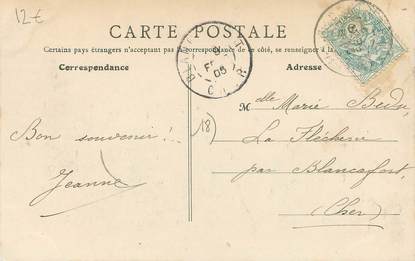 12€
CARTE POSTALE
Certains pays étrangers n'acceptant pas la correspondance de ce côté, se renseigner à la
Correspondance
Adresse
BLANCAFORT
9
05
CHER
Bon souvenir!
Jeanne
18)
Melle Marie
La
par Blancafort,
(Cher)